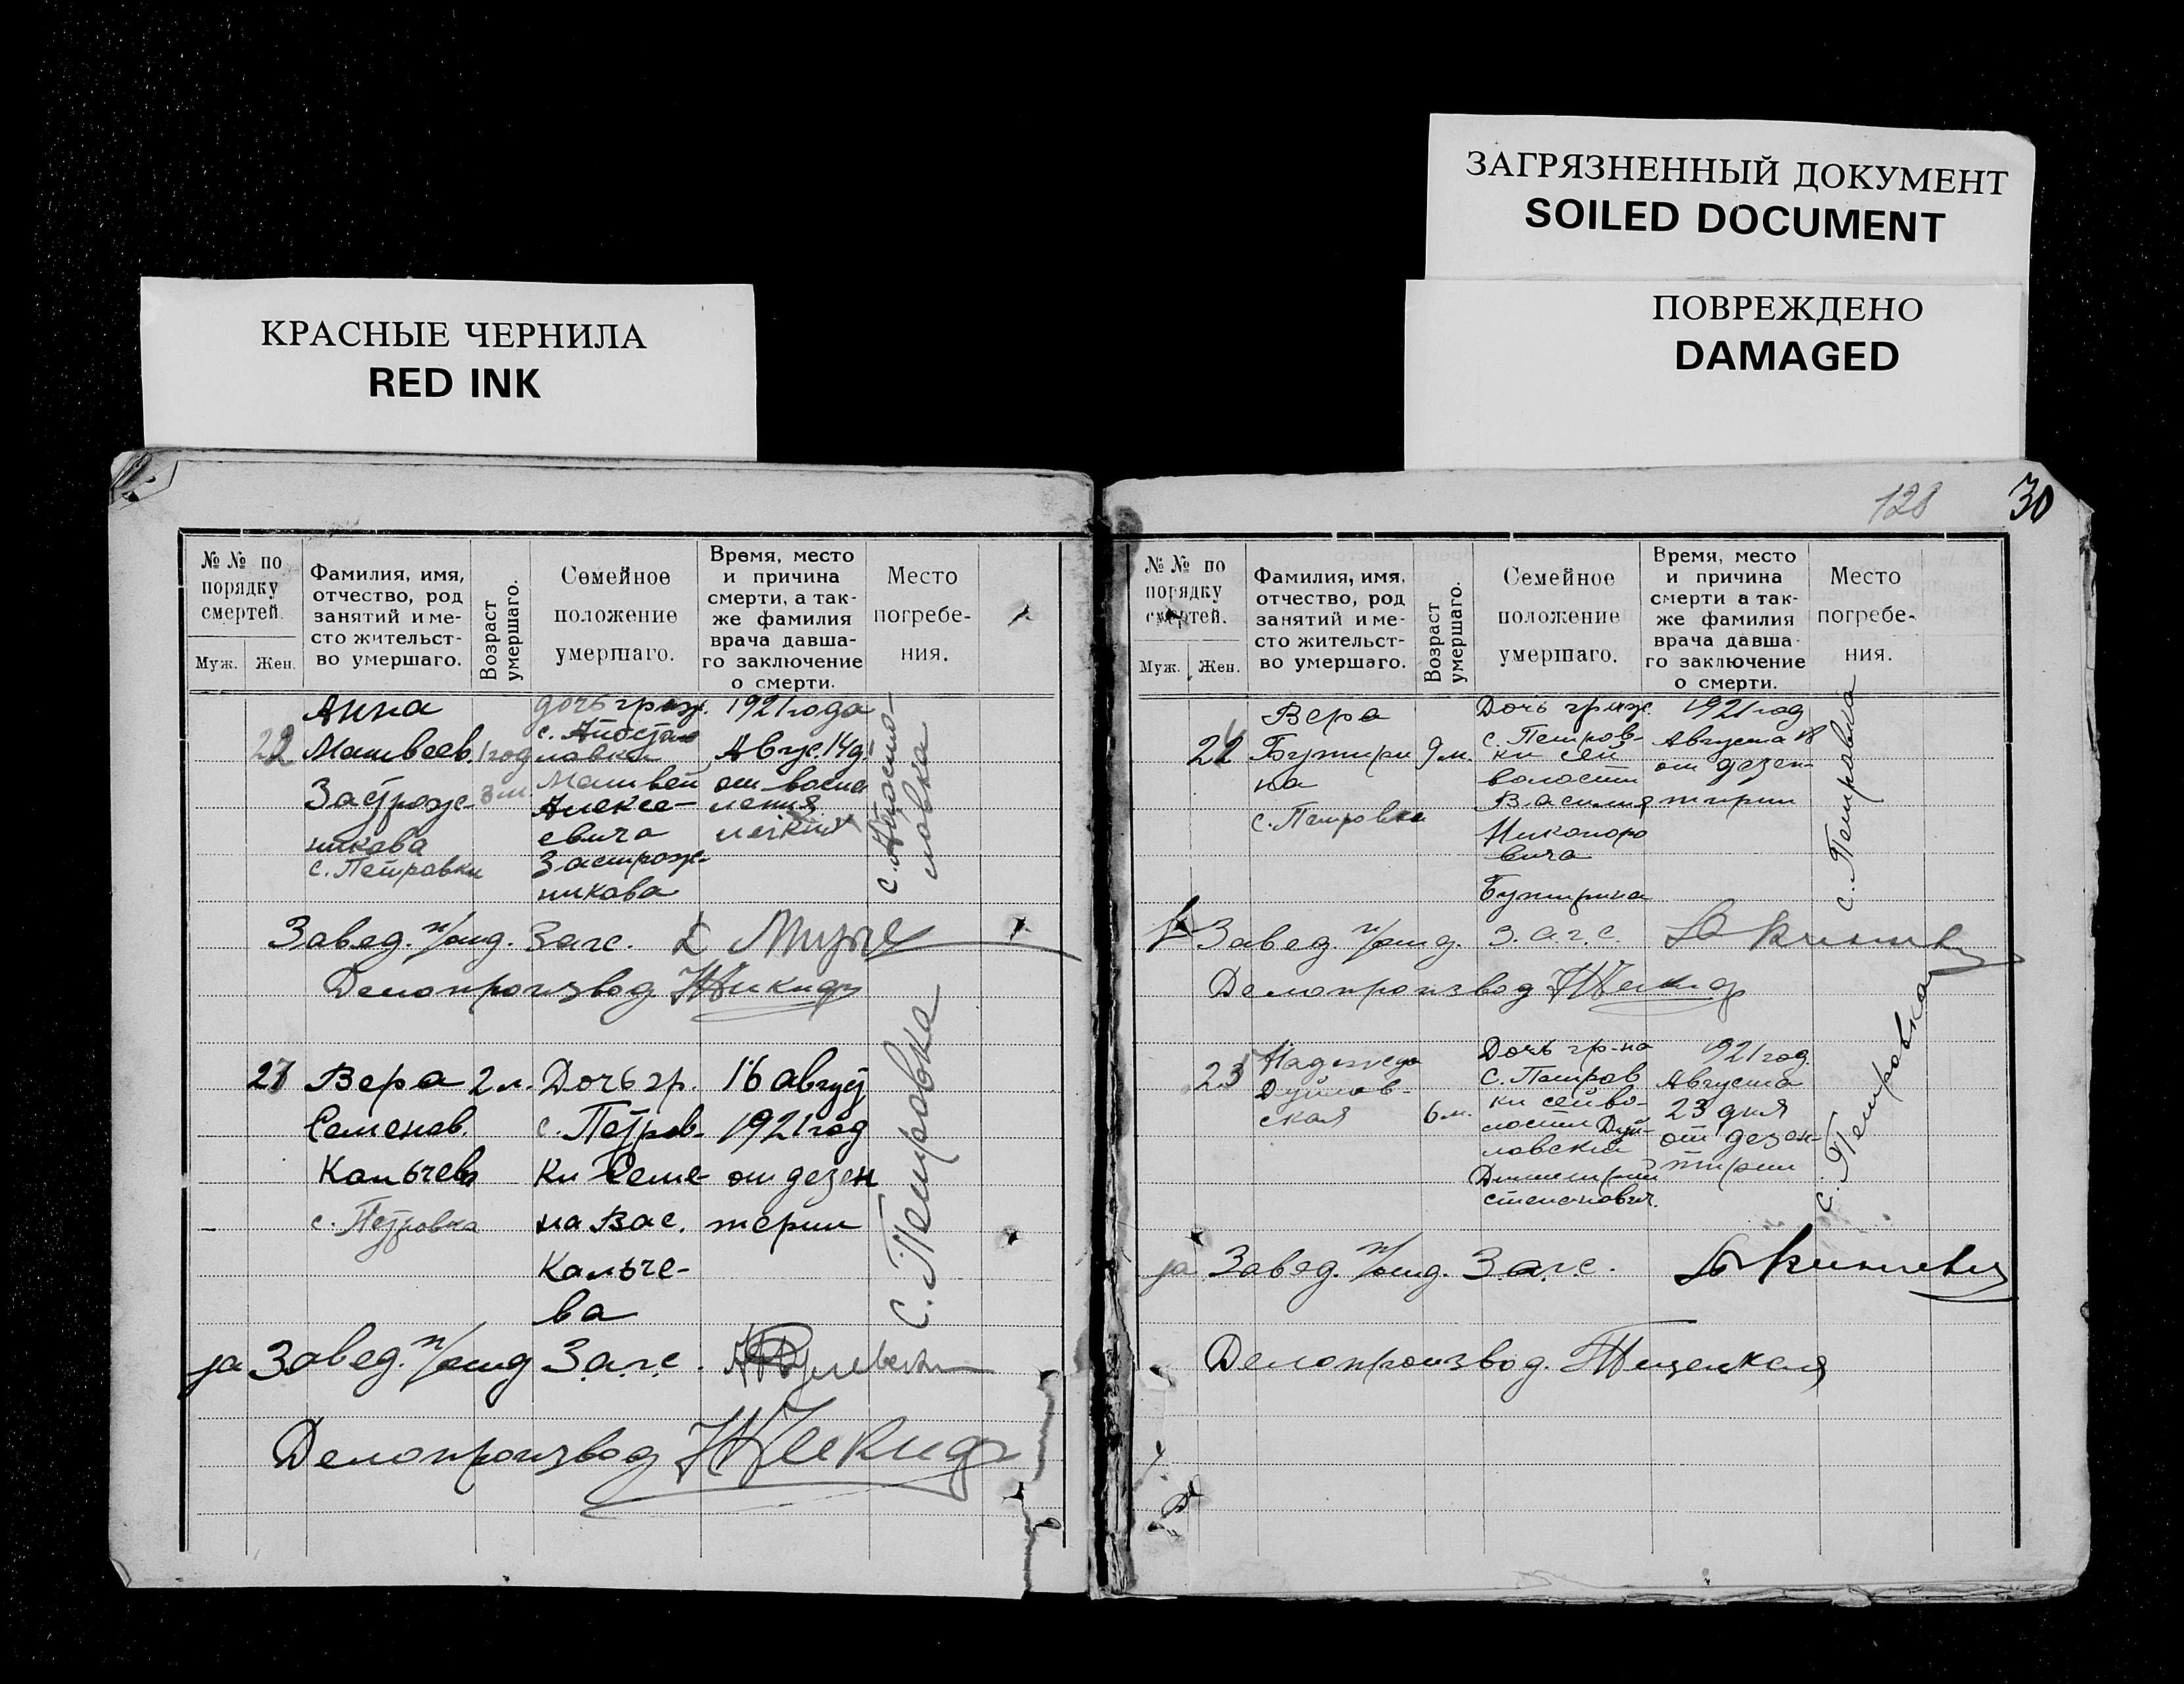 ЗАГРЯЗНЕННЫЙ ДОКУМЕНТ
SOILED DOCUMENT
ПОВРЕЖДЕНО
DAMAGED
КРАСНЫЕ ЧЕРНИЛА
RED INK
№ № по
порядку
смертей.
Муж. Жен.
Фамилия, имя,
отчество, род
занятий и ме-
сто жительст-
во умершаго.
Возраст
умершаго.
Семейное
положение
умершаго.
Время, место
и причина
смерти, а так-
же фамилия
врача давша-
го заключение
о смерти.
Место
погребе-
ния.
22
Анна
Матвеев.
Застрож-
никова
с. Петровки
1 год
3 м
дочь граж.
с. Апостло
ловки
Матвей
Алексе-
евича
Застрож-
никова
1921 года
Авгус. 14 д.
от воспа
ления
легких
с. Апосто-
ловка
Завед. п/отд. Загс.
Делопроизвод
Вера
Семенов.
Кальчева
с. Петровка
2 л.
Дочь гр.
с. Петров-
ки Семе-
на Вас.
Кальче-
ва
16 август
1921 год
от дезен
терии
с. Петровка
за Завед. п/отд З.а.г.с.
Делопроизвод
128
30
№ № по
порядку
смертей.
Муж. Жен.
Фамилия, имя,
отчество, род
занятий и ме-
сто жительст-
во умершаго.
Возраст
умершаго.
Семейное
положение
умершаго.
Время, место
и причина
смерти а так-
же фамилия
врача давша-
го заключение
о смерти.
Место
погребе-
ния.
Вера
Бутири
на
с. Петровка
9 м.
Дочь граж.
с. Петров-
ки сей
волости
Василия
Никоноро
вича
Бутирина
1921 год
Августа 18
от дезен-
тирии
с. Петровка
Завед. п/отд. З.а.г.с.
Делопроизвод
Надежда
Дуйлов-
ская
6 м.
Дочь гр-на
с. Петров
ки сей во-
лости Дуй-
ловский
Димитрий
Степанович.
1921 год.
Августа
23 дня
от дезен-
тирии
с. Петровка
за Завед. п/отд. З.а.г.с.
Делопроизвод.